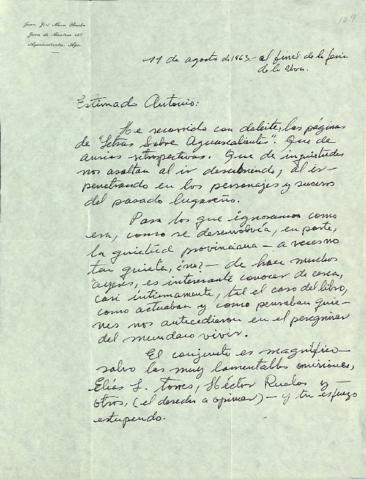 Juan de Montoro
Aguascalientes, Ags.
11 de agosto de 1963 - al finel de la feria
de la Uva.
Estimado Antonio:
He recorrido con deleite, las páginas
de "Letras Sobre Aguascalientes". Que de
ansias retrospectivas. Que de inquietudes
nos asaltan al ir descubriendo, al ir
penetrando en los personajes y sucesos
del pasado lugareño.
Para los que ignoramos como
era, como se desenvolvía, en parte,
la quietud provinciana - a veces no
tan quieta, ¿no? - de hace muchos
ayeres, es interesante conocer de cerca,
casi intimamente, tal el caso del libro,
como actuaban y como pensaban quie-
nes nos antecedieron en el peregrinar
del mundano vivir.
El conjunto es magnífico
salvo las muy lamentables omisiones,
Elías L. Torres, Héctor
otros, (el derecho a opinar) - y tu esfuerzo
estupendo.